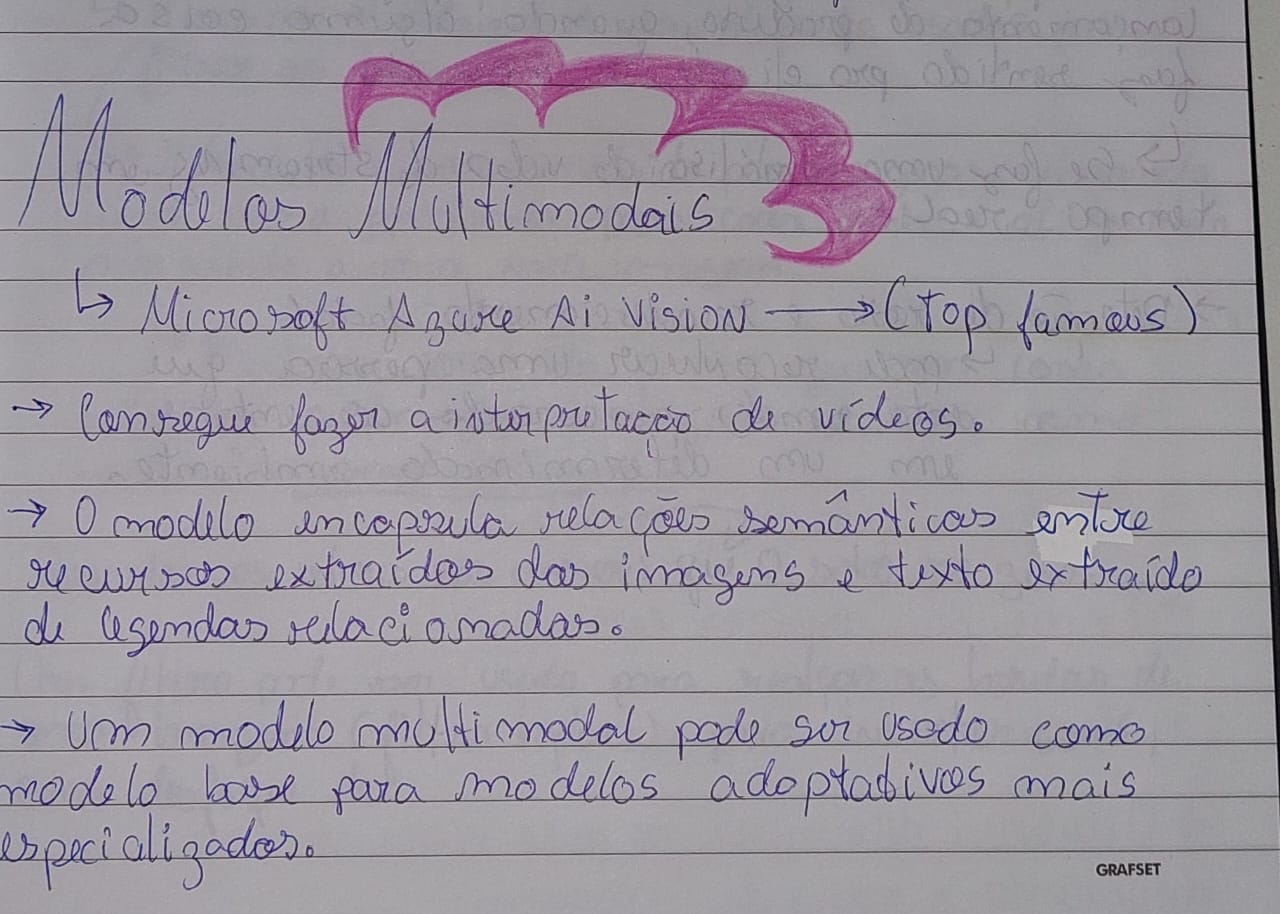 Modelos Multimodais
↳ Microsoft Azure Ai Vision → (Top famous)
→ Consegue fazer a interpretação de vídeos.
→ O modelo encapsula relações semânticas entre
recursos extraídos das imagens e texto extraído
de legendas relacionadas.
→ Um modelo multimodal pode ser usado como
modelo base para modelos adaptativos mais
especializados.
GRAFSET